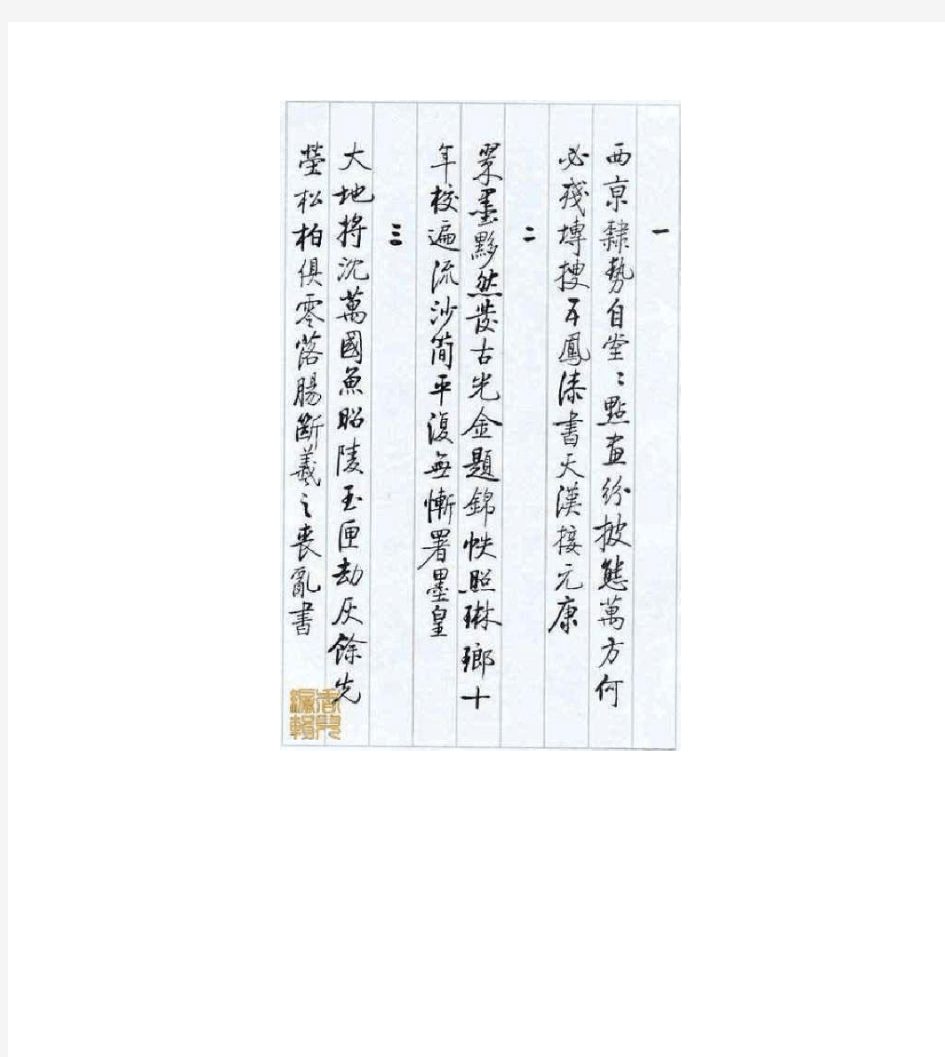 一
西京隸勢自堂〻點畫紛披態萬方何
必殘塼搜五鳳漆書天漢接元康
二
翠墨黟然發古光金題錦帙照琳瑯十
年校遍流沙簡平復無慚署墨皇
三
大地將沈萬國魚昭陵玉匣劫灰餘先
塋松柏俱零落腸斷羲之喪亂書
編輯